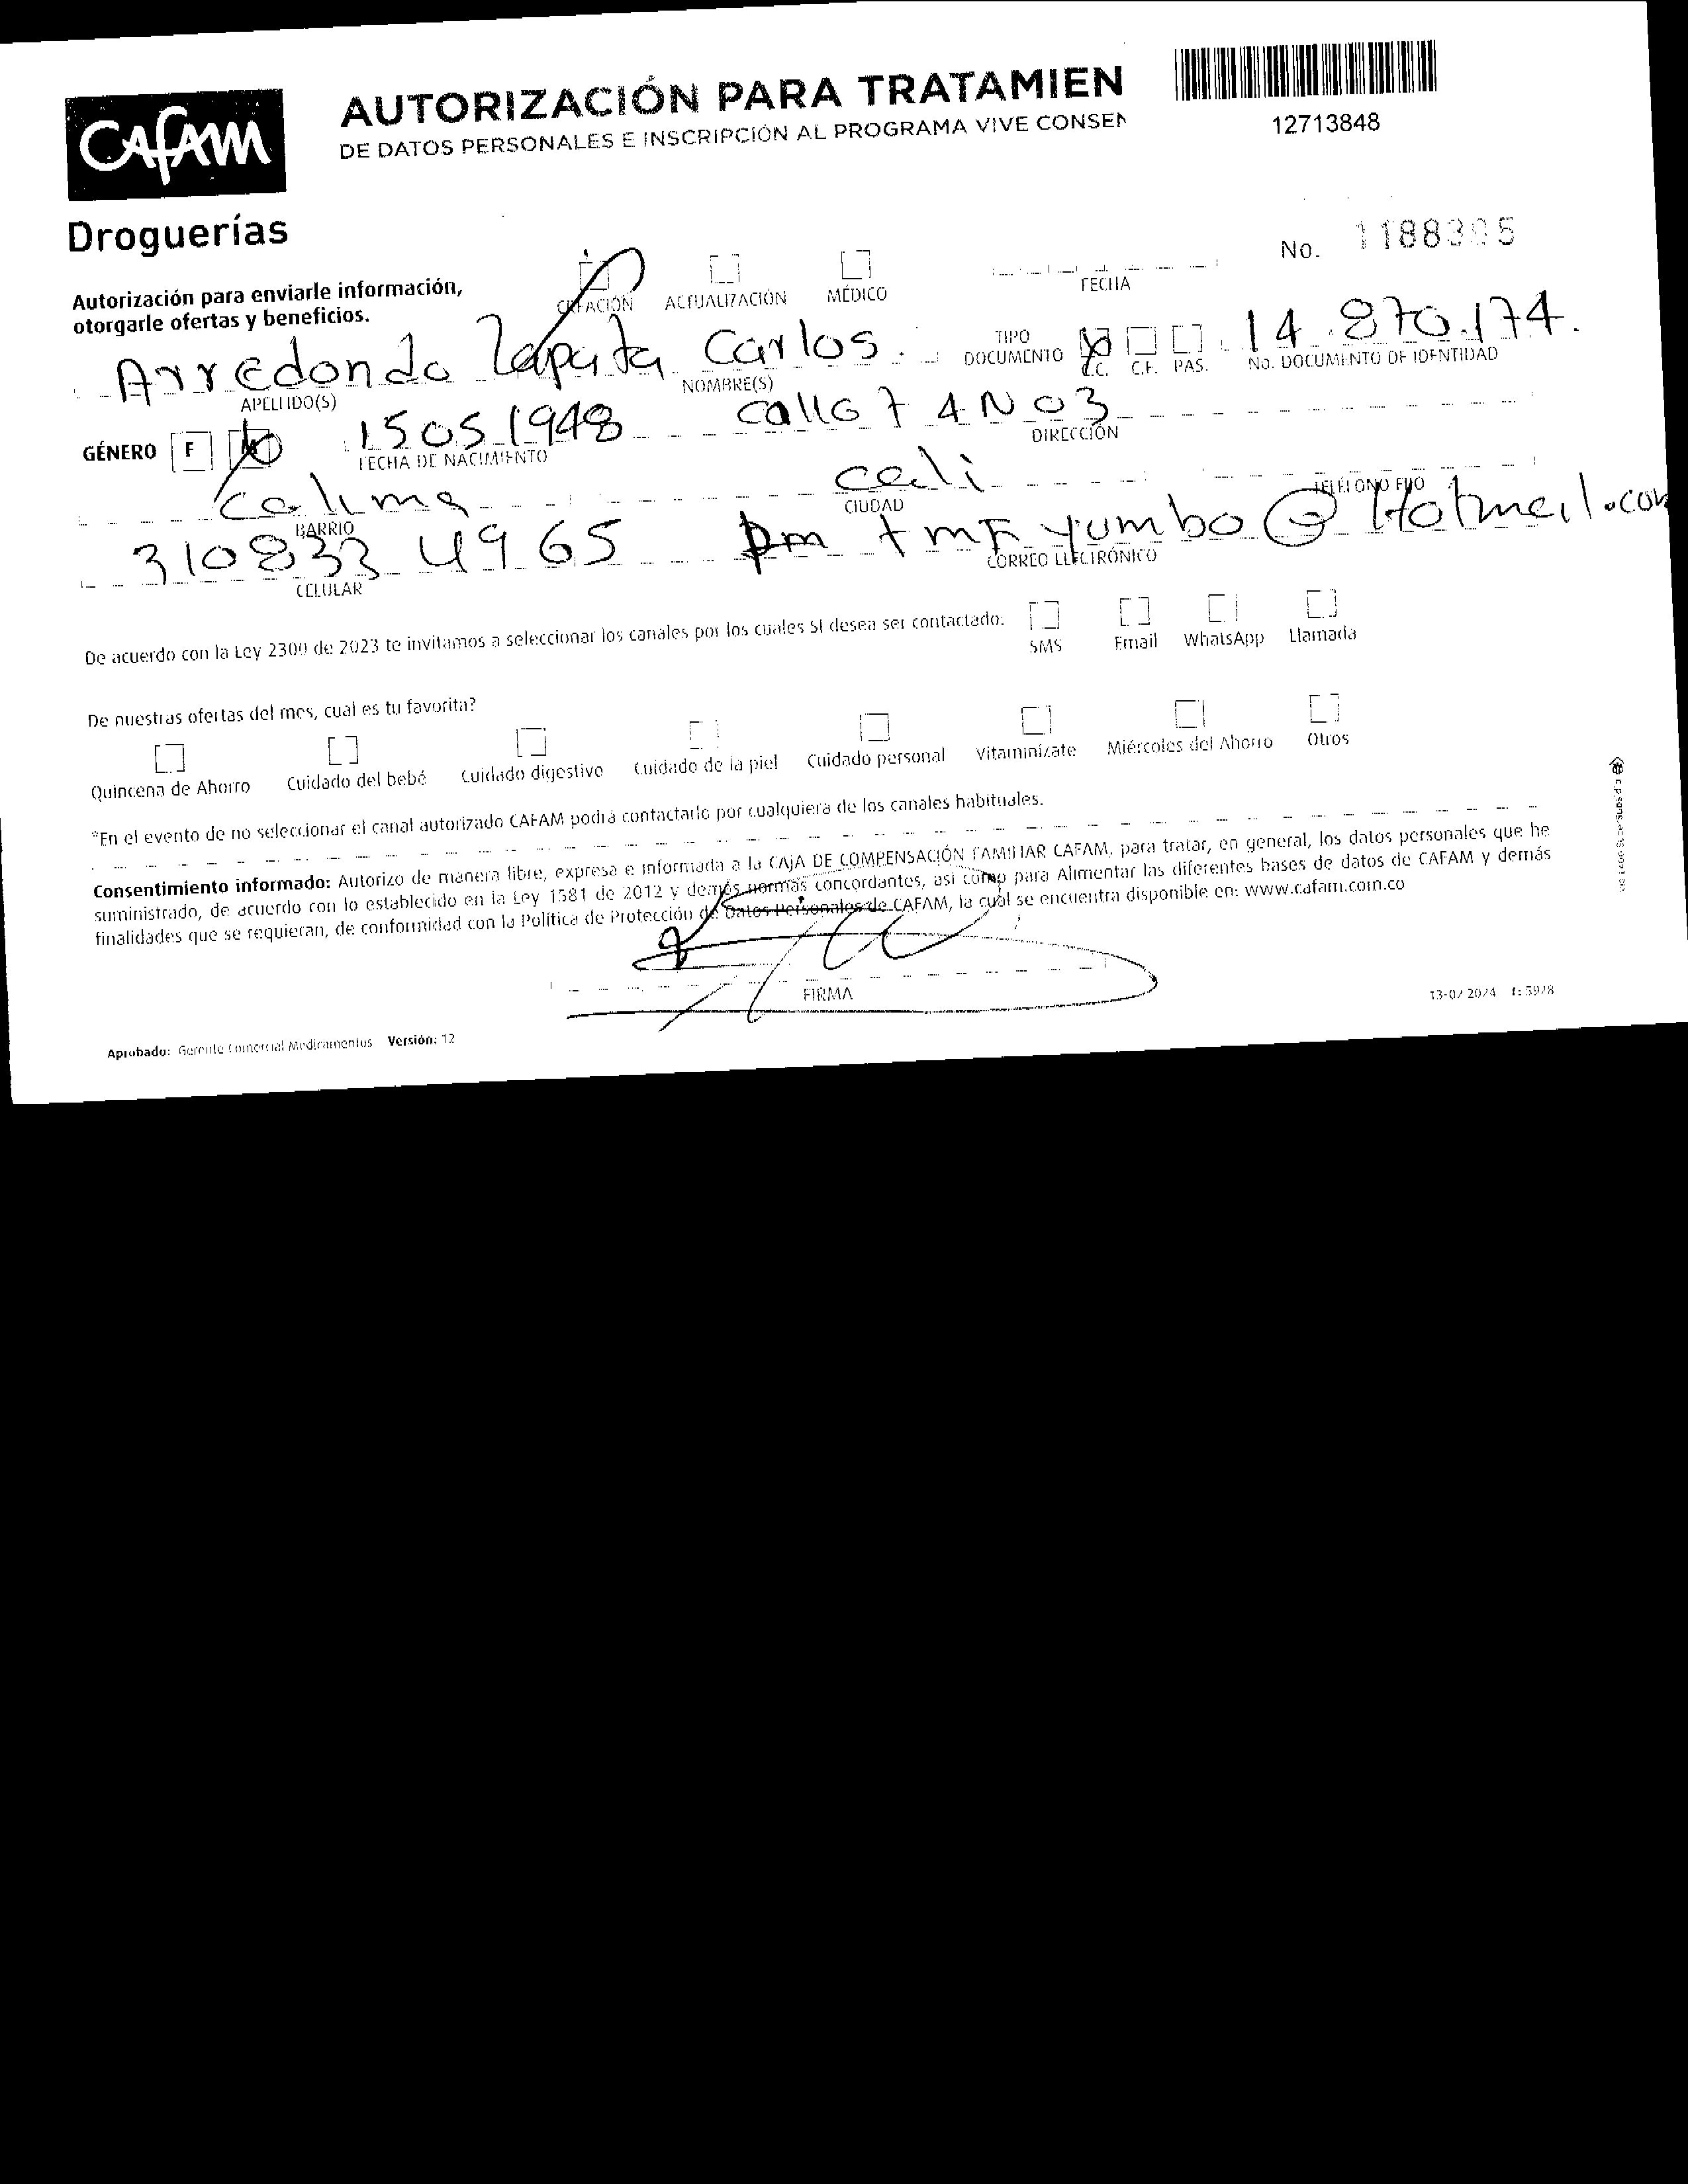 CAFAM
Droguerías
AUTORIZACIÓN PARA TRATAMIEN
DE DATOS PERSONALES E INSCRIPCIÓN AL PROGRAMA VIVE CONSEN
12713848
No. 1188395
Autorización para enviarle información,
otorgarle ofertas y beneficios.
CREACIÓN ACTUALIZACIÓN MÉDICO FECHA
Arredondo Zapata Carlos. TIPO DOCUMENTO C.C. C.E. PAS. 14.870.174.
APELLIDO(S) NOMBRE(S) No. DOCUMENTO DE IDENTIDAD
GÉNERO F M 15051948 calle 7 4N03
FECHA DE NACIMIENTO DIRECCIÓN
calima cali
BARRIO CIUDAD TELÉFONO FIJO
310833 4965 yumbo@Hotmail.com
CELULAR CORREO ELECTRÓNICO
De acuerdo con la Ley 2300 de 2023 te invitamos a seleccionar los canales por los cuales SI desea ser contactado: SMS Email WhatsApp Llamada
De nuestras ofertas del mes, cual es tu favorita?
Quincena de Ahorro Cuidado del bebé Cuidado digestivo Cuidado de la piel Cuidado personal Vitaminízate Miércoles del Ahorro Otros
*En el evento de no seleccionar el canal autorizado CAFAM podrá contactarlo por cualquiera de los canales habituales.
Consentimiento informado: Autorizo de manera libre, expresa e informada a la CAJA DE COMPENSACIÓN FAMILIAR CAFAM, para tratar, en general, los datos personales que he
suministrado, de acuerdo con lo establecido en la Ley 1581 de 2012 y demás normas concordantes, así como para Alimentar las diferentes bases de datos de CAFAM y demás
finalidades que se requieran, de conformidad con la Política de Protección de Datos Personales de CAFAM, la cual se encuentra disponible en: www.cafam.com.co
FIRMA
13-02 2024 f: 5928
Aprobado: Gerente Comercial Medicamentos Versión: 12